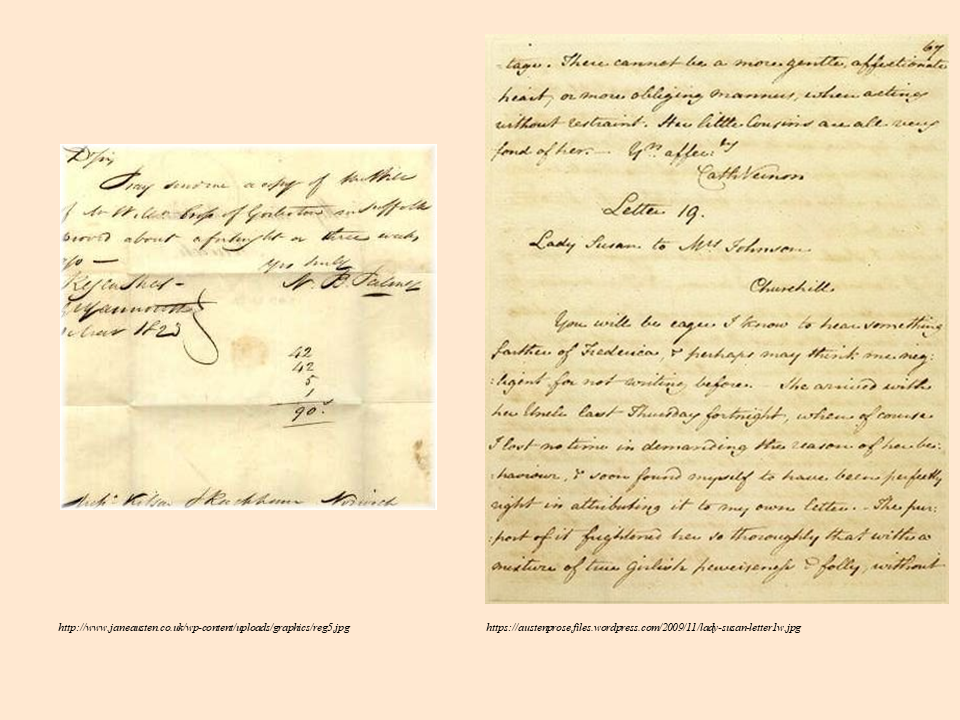 Dr Sir
Pray send me a copy of the Will
of Mr Willm Cross of Gorleston in Suffolk
proved about a fortnight or three weeks
ago —
Yrs truly
N. B. Palmer
Yarmouth
1823
42
42
5
1
90.
Norwich
http://www.janeausten.co.uk/wp-content/uploads/graphics/reg5.jpg
67
-tage. There cannot be a more gentle, affectionate
heart, or more obliging manners, when acting
without restraint. Her little Cousins are all very
fond of her. — Yrs. affecly
Cath Vernon
Letter 19.
Lady Susan to Mrs Johnson
Churchill
You will be eager I know to hear something
farther of Frederica, & perhaps may think me neg:
:ligent for not writing before. – She arrived with
her Uncle last Thursday fortnight, when of course
I lost no time in demanding the reason of her be:
:haviour, & soon found myself to have been perfectly
right in attributing it to my own letter. – The pur:
:port of it frightened her so thoroughly that with a
mixture of true girlish perverseness & folly, without
https://austenprose.files.wordpress.com/2009/11/lady-susan-letter1w.jpg